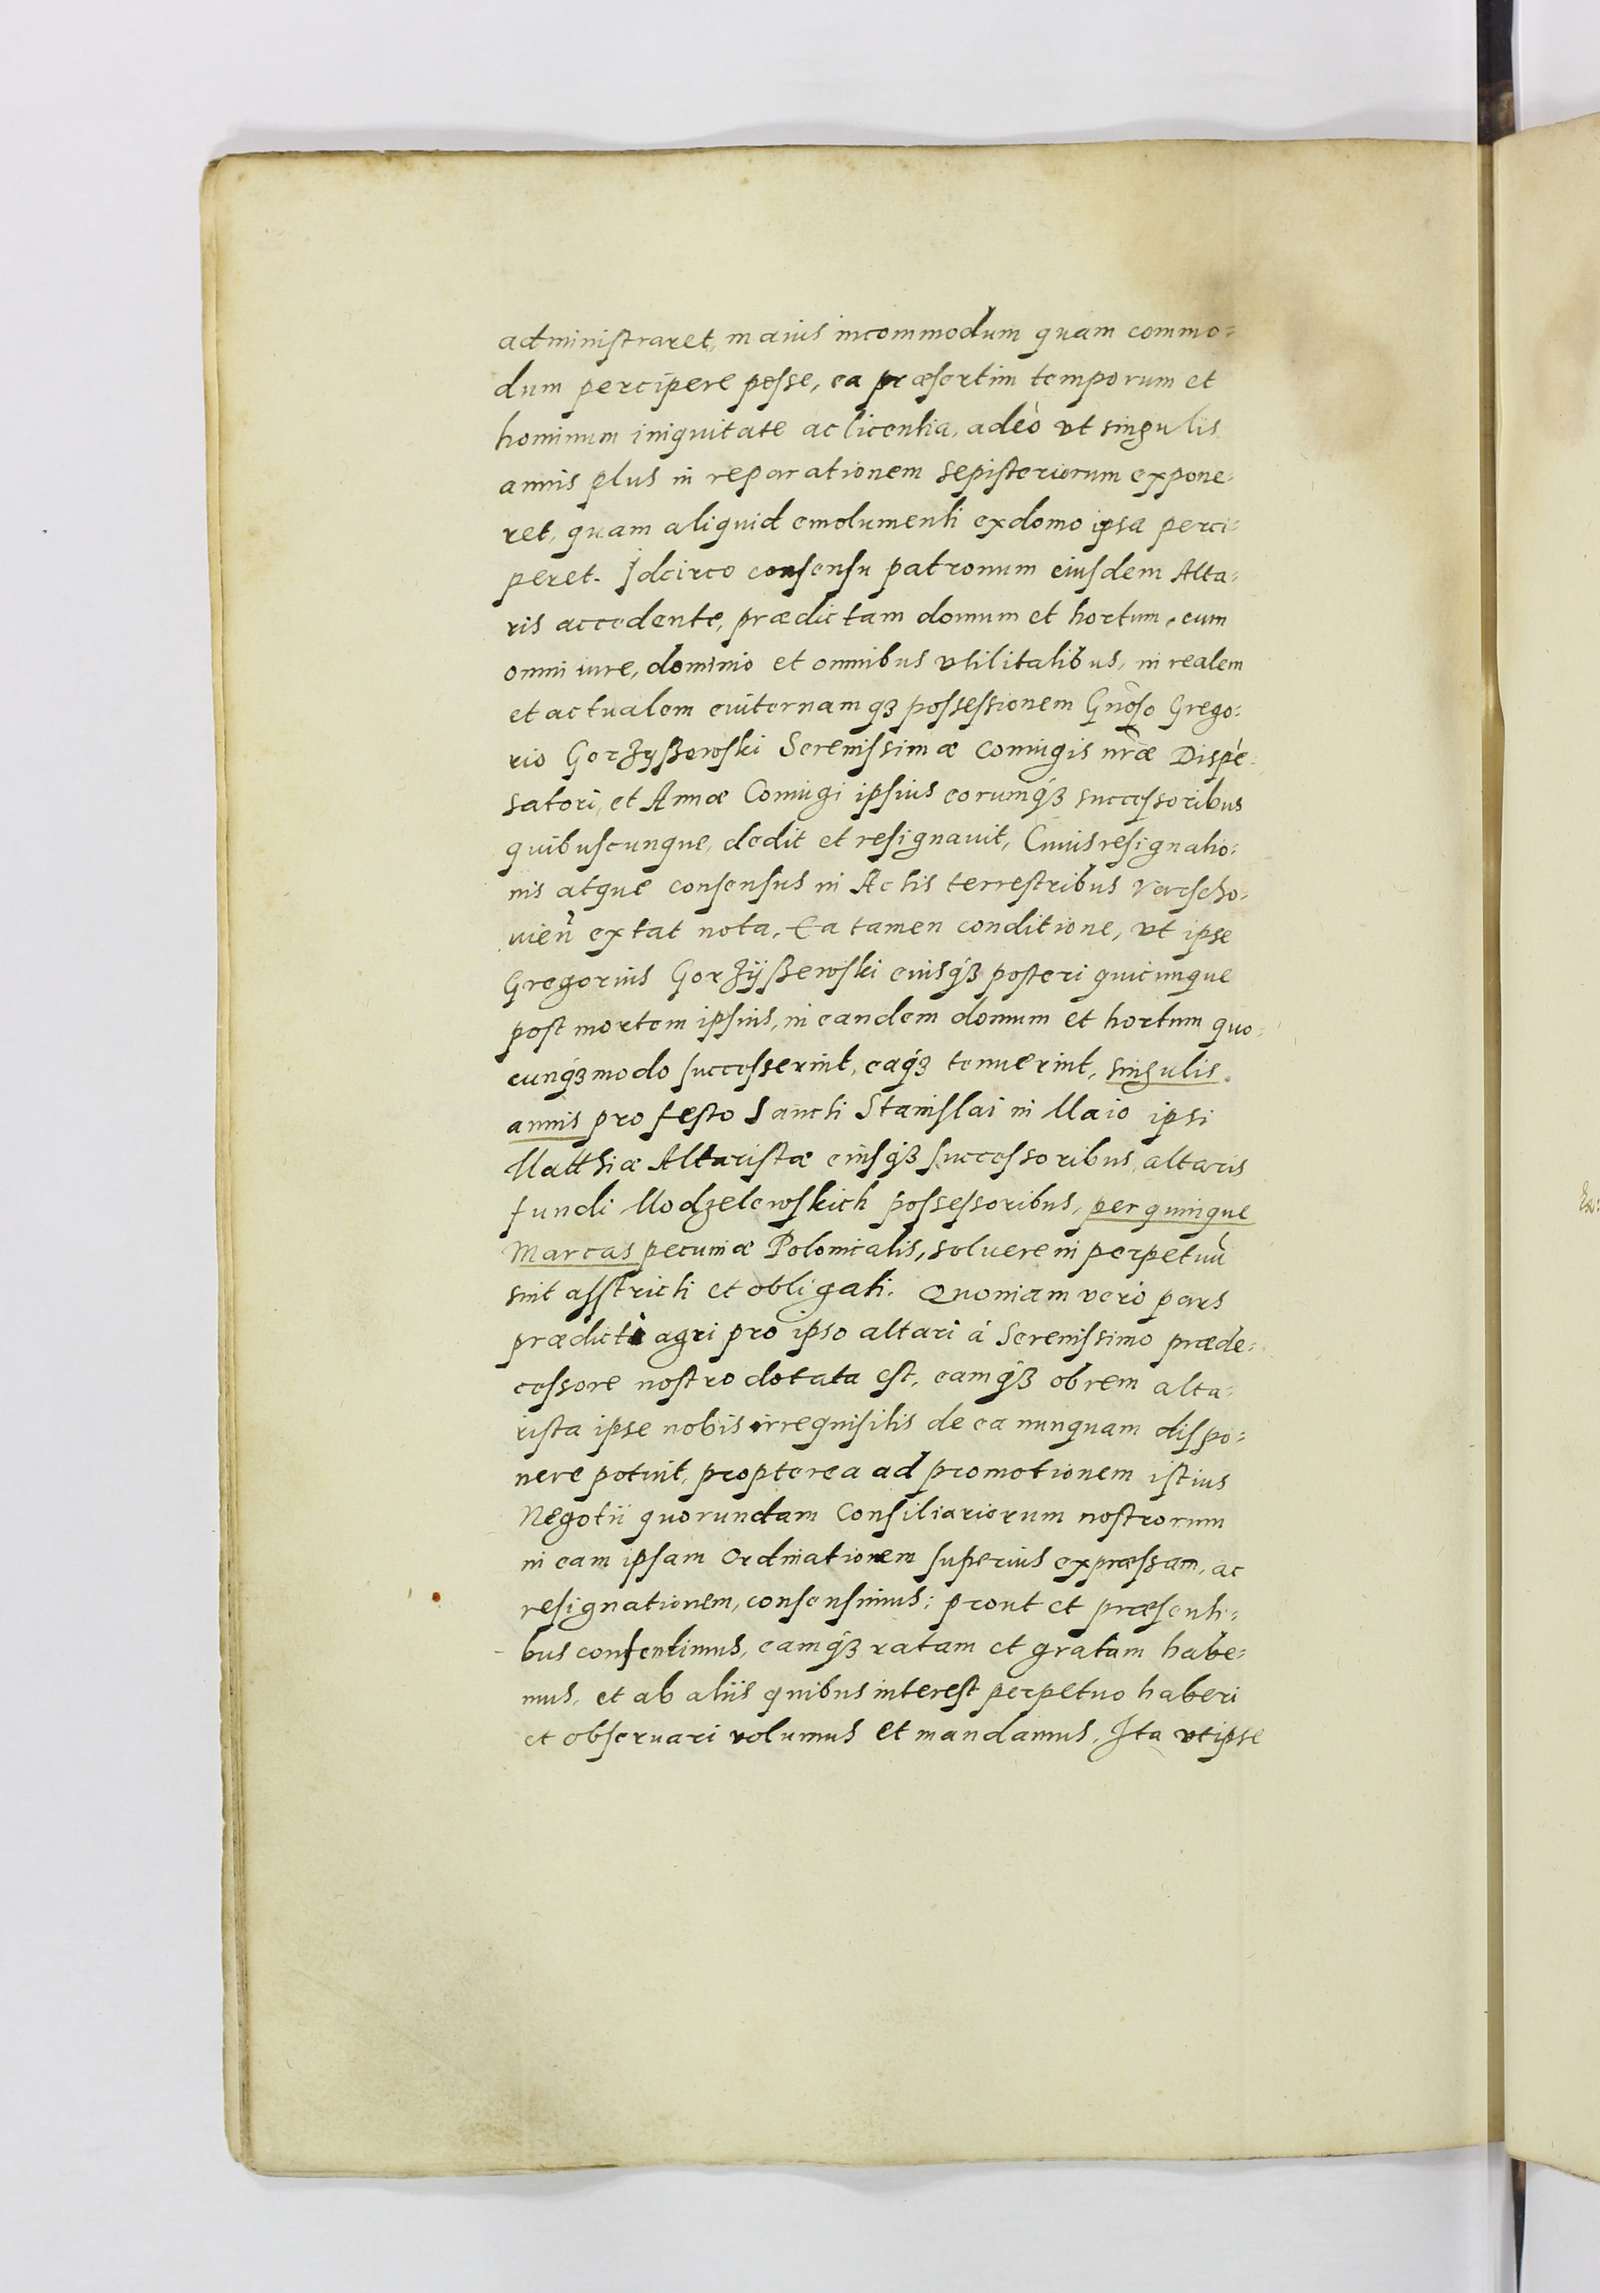 administraret, maius incommodum quam commo=
dum percipere posse, ea præsertim temporum et
hominum iniquitate ac licentia, adeò vt singulis
annis plus in reparationem sepisteriorum expone=
ret, quam aliquid emolumenti ex domo ipsa perci=
peret. Idcirco consensu patronum eiusdem Alta=
ris accedente, prædictam domum et hortum, cum
omni iure, dominio et omnibus vtilitatibus, in realem
et actualem euiternamqʒ possessionem Gn̄oso Grego=
rio Gorzyßewski Serenissimæ Coniugis nr̄æ Dispē=
satori, et Annæ Coniugi ipsius eorumqʒ successoribus
quibuscunque, dedit et resignauit, Cuius resignatio=
nis atque consensus in Actis terrestribus Varscho=
uień extat nota, Ea tamen conditione, vt ipse
Gregorius Gorzyßewski eiusqʒ posteri quicunque
post mortem ipsius, in eandem domum et hortum quo=
cunqʒ modo successerint, eaqʒ tenuerint, singulis
annis pro festo Sancti Stanislai in Maio ipsi
Matthiæ Altaristæ eiusqʒ successoribus, altaris
fundi Modzelewskich possessoribus, per quinque
Marcas pecuniæ Polonicalis, soluere in perpetuū
sint asstricti et obligati. Quoniam verò pars
prædicti agri pro ipso altari á Serenissimo præde=
cessore nostro dotata est, eamqʒ ob rem alta=
rista ipse nobis irrequisitis de ea nunquam dispo=
nere potuit, propterea ad promotionem istius
Negotii quorundam Consiliariorum nostrorum
in eam ipsam Ordinationem superius expræssam, ac
resignationem, consensimus; prout et præsenti=
bus consentimus, eamqʒ ratam et gratam habe=
mus, et ab aliis quibus interest perpetuo haberi
et obseruari volumus et mandamus, Ita vt ipse